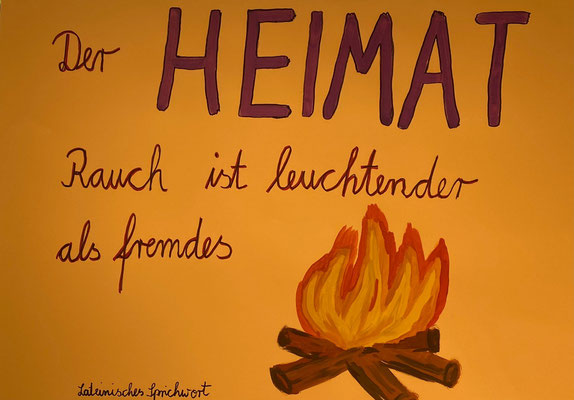 Der HEIMAT
Rauch ist leuchtender
als fremdes
Lateinisches Sprichwort